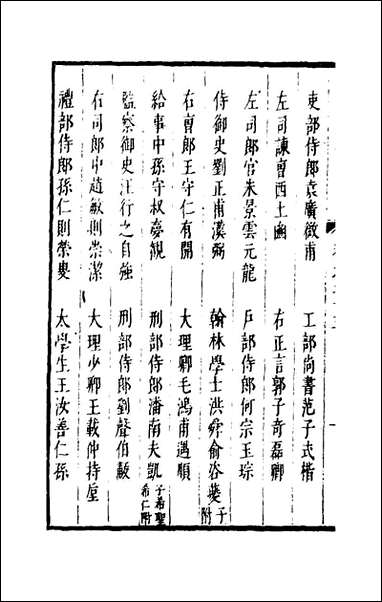 吏部侍郎袁廣微甫　工部尚書范子式楷
左司諫曹西土豳　右正言郭子奇磊卿
左司郎官朱景雲元龍　戶部侍郎何宗玉琮
侍御史劉正甫漢弼　翰林學士洪舜俞咨夔子附
右曹郎王守仁有開　大理卿毛鴻甫遇順
給事中孫守叔夢觀　刑部侍郎潘南夫凱子希聖希仁附
監察御史汪行之自強　刑部侍郎劉聲伯黻
右司郎中趙敏則崇潔　大理少卿王載仲持垕
禮部侍郎孫仁則榮叟　太學生王汝善仁孫